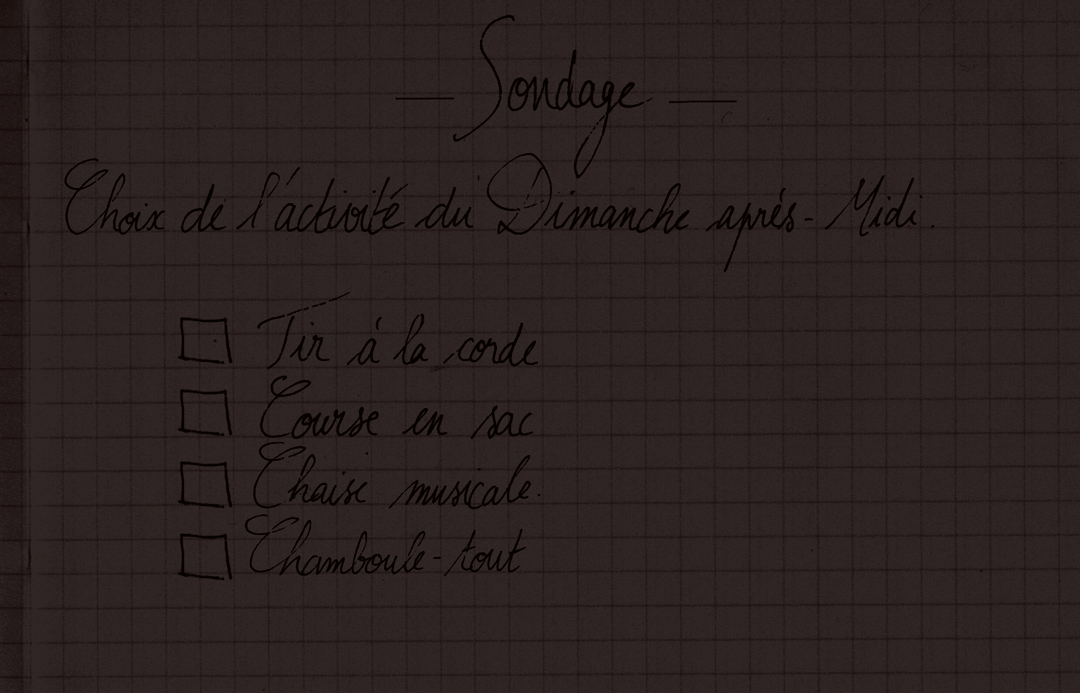 — Sondage —
Choix de l'activité du Dimanche après-Midi.
Tir à la corde
Course en sac
Chaise musicale.
Chamboule-tout